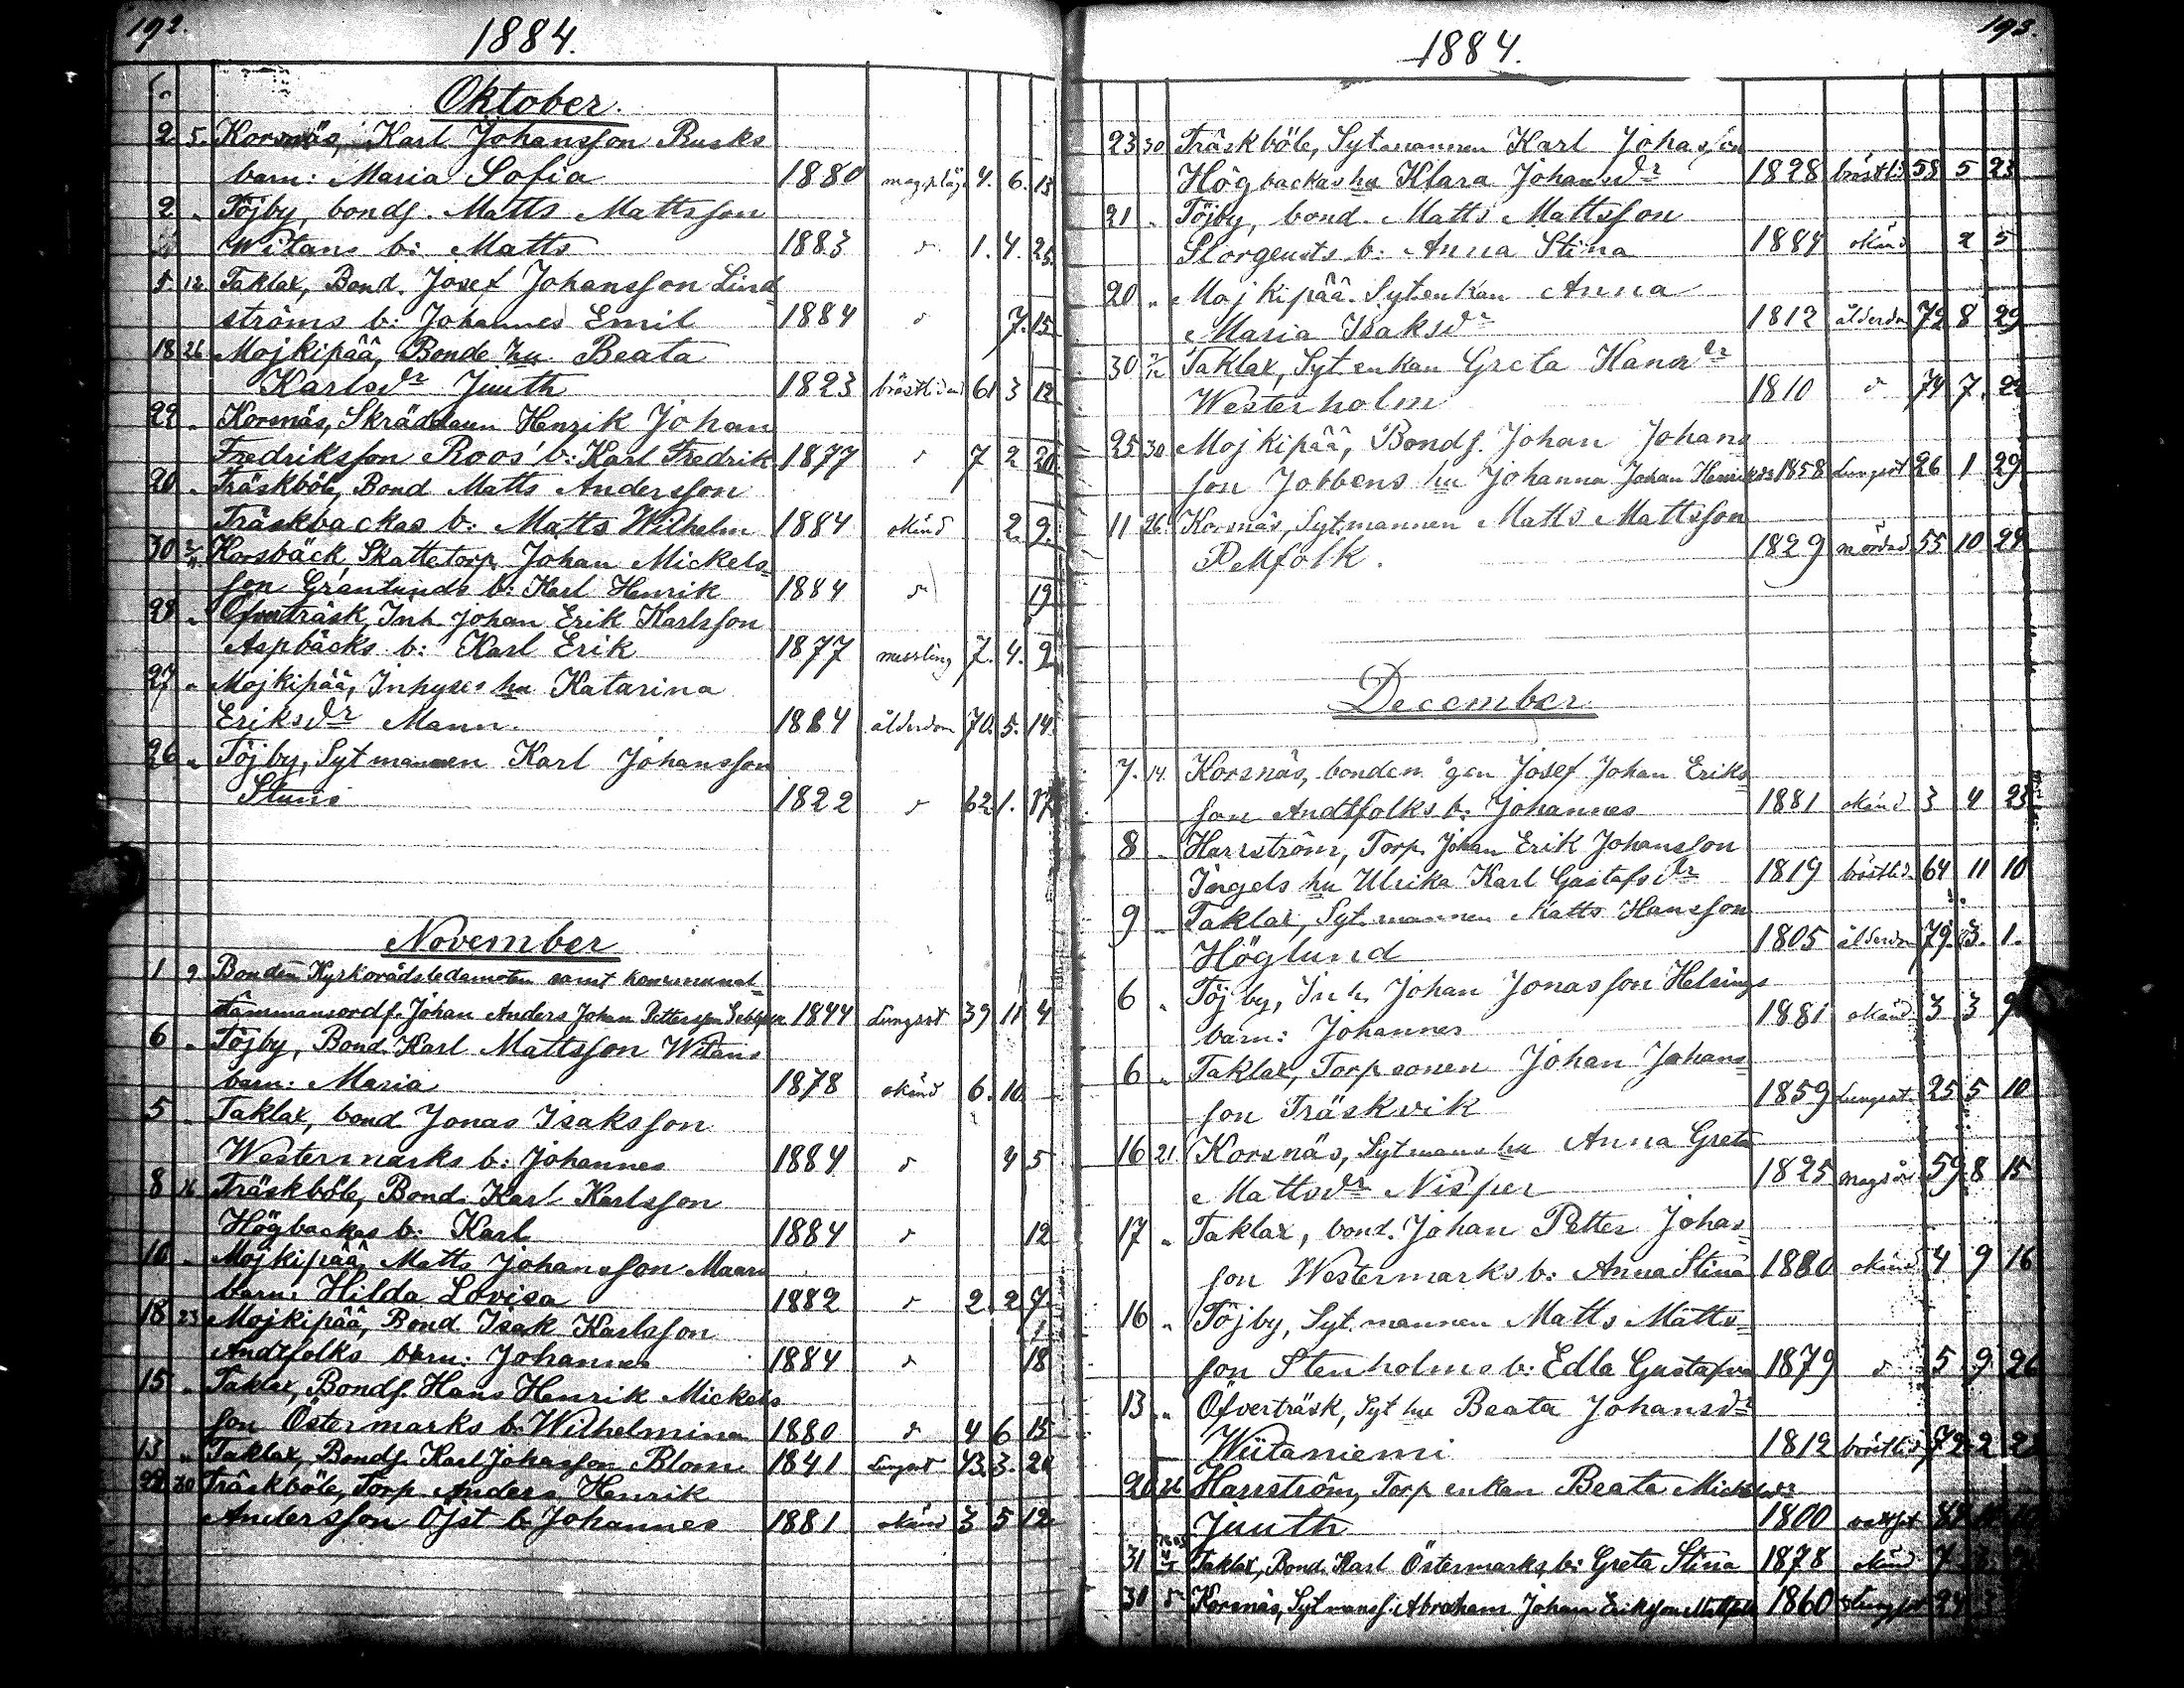 192.
1884.
Oktober.
2. 5. Korsnäs, Karl Johansson Rusks
barn: Maria Sofia 1880 4. 6. 13
2 " Töjby, bonds. Matts Mattsson
Witans b: Matts 1883 d:o 1. 4. 25.
5. 12 Taklax, Bond. Josef Johansson Lind=
ströms b: Johannes Emil 1884 d:o 7. 15
18 26 Mojkipää, Bonde hu Beata
Karlsdr Juuth 1823 bröstlidand 61 3 12
22 " Korsnäs, Skräddaren Henrik Johan
Fredriksson Roos' b: Karl Fredrik 1877 d:o 7 2 20.
20 " Träskböle, Bond Matts Andersson
Träskbackas b: Matts Wilhelm 1884 okänd 2. 9.
30 2/11 Korsbäck, Skattetorp. Johan Mickels=
son Granlunds b: Karl Henrik 1884 d:o 19
28 " Öfverträsk, Inh. Johan Erik Karlsson
Aspbäcks b: Karl Erik 1877 messling 7. 4. 9
27 " Mojkipää, Inhyses hu Katarina
Eriksdr Mann. 1884 ålderdom 70. 5. 14.
26 " Töjby, Sytmannen Karl Johansson
Stuns 1822 d:o 62 1. 17
November
1 9 Bonden Kyrkorådsledamoten samt kommunal=
stämmansordf. Johan Anders Johan Pettersson 1844 Lungsot 39 11 4
6 " Töjby, Bond. Karl Mattsson Witans
barn: Maria 1878 okänd 6. 10
5 " Taklax, bond. Jonas Isaksson
Westermarks b: Johannes 1884 d:o 4 5
8 16 Träskböle, Bond. Karl Karlsson
Högbackas b: Karl 1884 d:o 12
10 " Mojkipää, Matts Johansson Maars
barn: Hilda Lovisa 1882 d:o 2. 2 7.
18 23 Mojkipää, Bond. Isak Karlsson 1
Andtfolks barn: Johannes 1884 d:o 18
15 " Taklax, Bonds. Hans Henrik Mickels
son Östermarks b: Wilhelmina 1880 d:o 4 6 15
13 " Taklax, Bonds. Karl Johansson Blom 1841 Lungsot 43. 3. 20
22 30 Träskböle, Torp. Anders Henrik
Andersson Öjst b. Johannes 1881 okänd 3 5 12
193.
1884.
23 30 Träskböle, Sytmannen Karl Johansson
Högbackas hu Klara Johansdr 1828 bröstlid 58 5 23
21 " Töjby, bond. Matts Mattsson
Storgeusts b: Anna Stina 1884 okänd 2 5
20 " Mojkipää. Sytenkan Anna
Maria Isaksdr 1812 ålderdo 72 8 29
30 7/12 Taklax, Sytenkan Greta Hansdr
Westerholm 1810 d:o 74 7. 22
25 30 Mojkipää, Bonds. Johan Johans
son Jobbens hu Johanna Johan Henriksdr 1858 Lungsot 26 1 29
11 26. Korsnäs, Sytmannen Matts Mattsson
1829 mördad 55 10 29
December
7. 14. Korsnäs, bonden Josef Johan Eriks=
son Andtfolks b: Johannes 1881 okänd 3 4 23
8 " Harrström, Torp. Johan Erik Johansson
Ingels hu Ulrika Karl Gustafsdr 1819 bröstlid. 64 11 10
9 " Taklax, Sytmannen Matts Hansson
Höglund 1805 ålderdo 79. 3. 1.
6 " Töjby, Inh. Johan Jonasson Helsings
barn: Johannes 1881 okänd 3 3 9
6 " Taklax, Torpsonen Johan Johans=
son Träskvik 1859 Lungsot. 25 5 10
16 21. Korsnäs, Sytmans hu Anna Greta
Mattsdr Nisper 1825 59. 8 15
17 " Taklax, bond. Johan Petter Johas=
son Westermarks b: Anna Stina 1880 okänd 4 9 16
16 " Töjby, Syt.mannen Matts Matts=
son Stenholms b: Edla Gustafva 1879 d:o 5. 9 26
13 " Öfverträsk, Syt hu Beata Johansdr
Wiitaniemi 1812 bröstlid 72. 2
20 26 Harrström, Torp enkan Beata Mickelsdr
Juuth 1800
31 Taklax, Bond. Karl Östermarks b: Greta Stina 1878 okänd 7
30 Korsnäs, Sytmanss. Abraham Johan Eriksson 1860 Lungsot 24 3